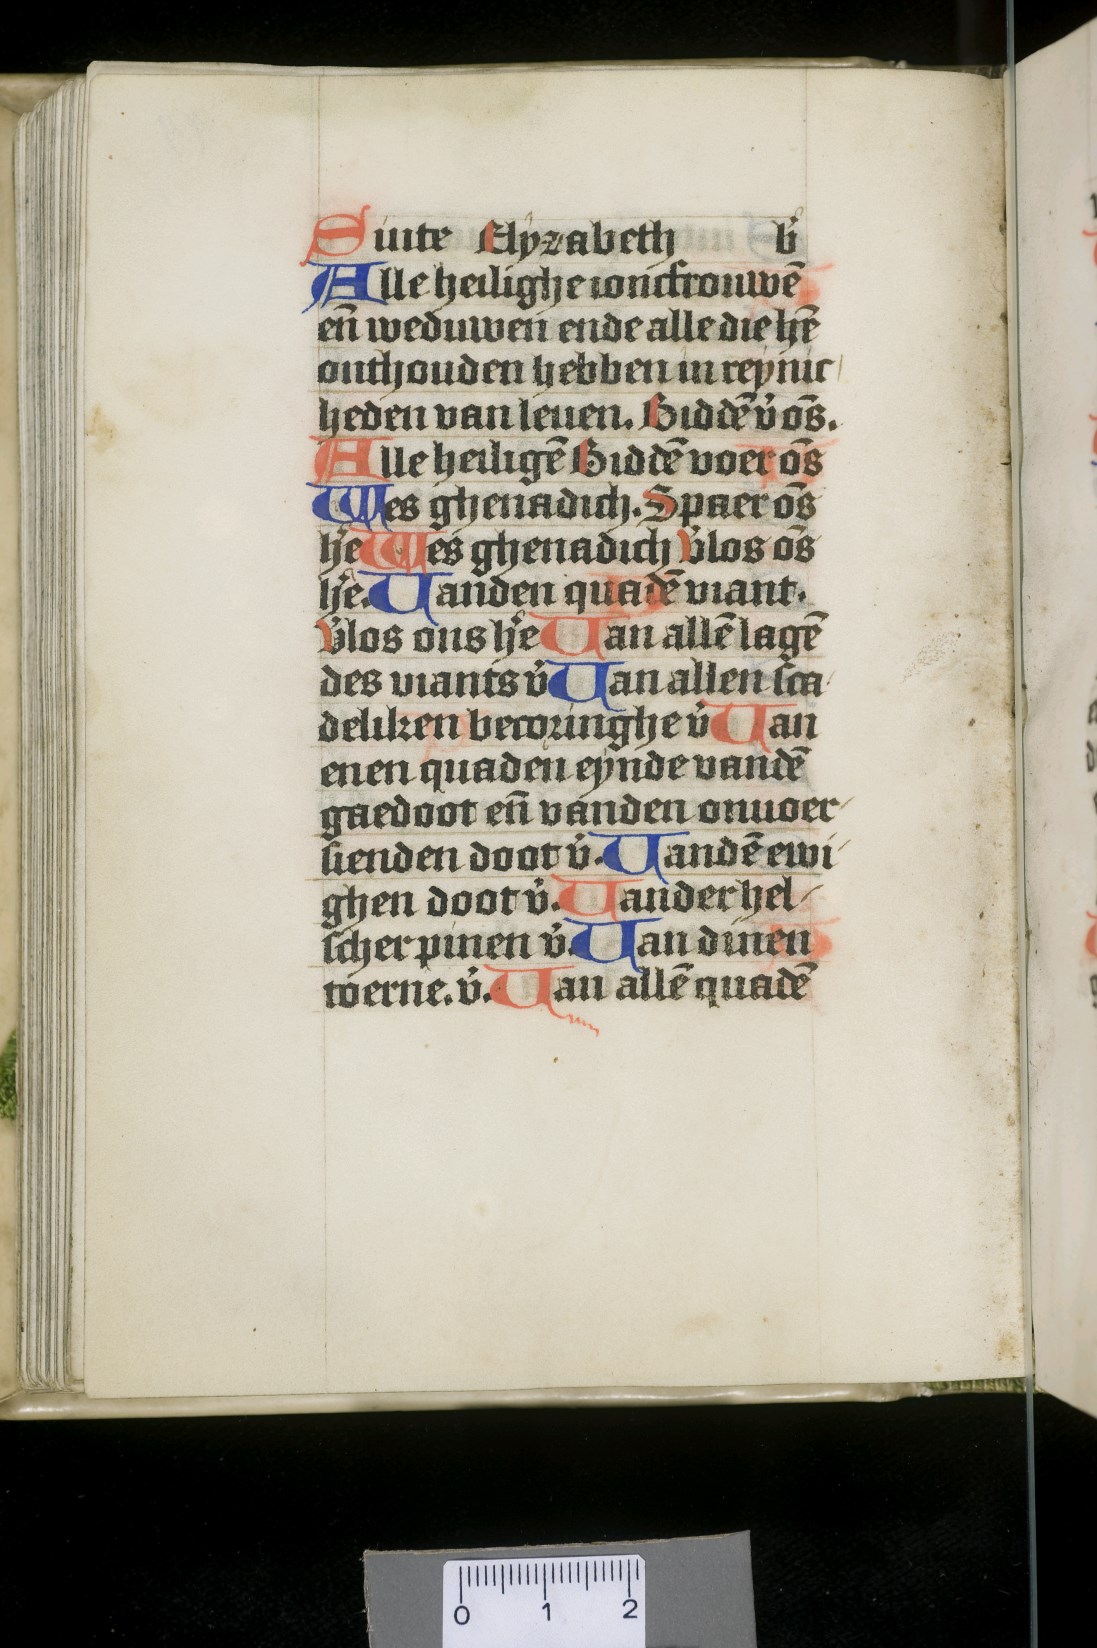 Sinte Elyzabeth b̾
Alle heilighe ioncfrouwē
en̄ weduwen ende alle die hē
onthouden hebben in reynic
heden van leuen. Biddē v̾ ōs.
Alle heiligē Biddē voer ōs
Wes ghenadich. Spaer ōs
h̾e Wes ghenadich v̾los ōs
h̾e. Uanden quadē viant.
v̾los ons h̾e Uan allē lagē
des viants v̾ Uan allen sca
deliken becoringhe v̾ Uan
enen quaden eynde vandē
gaedoot en̄ vanden onuoer
sienden doot v̾. Uandē ewi
ghen doot v̾. Uander hel
scher pinen v̾. Uan dinen
toerne. v̾. Uan allē quadē
0 1 2